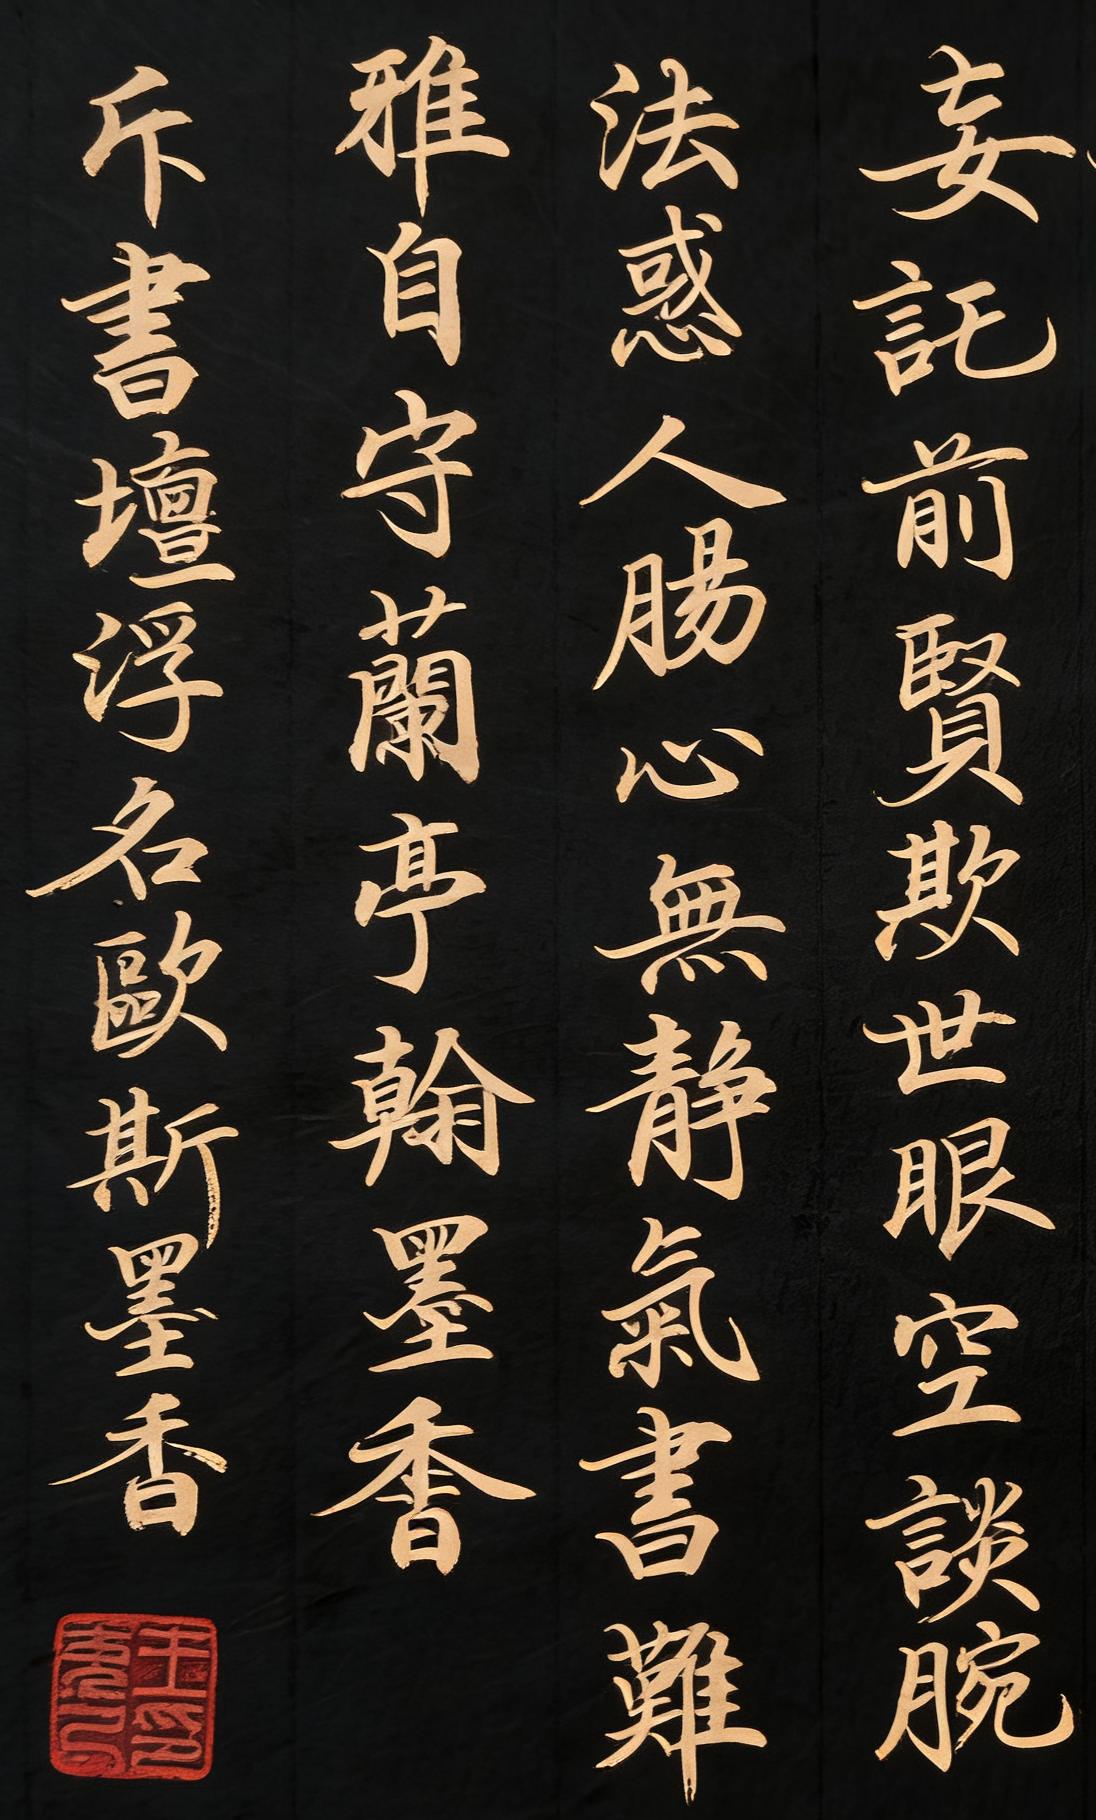 妄託前賢欺世眼空談腕
法惑人腸心無静氣書難
雅自守蘭亭翰墨香
斥書壇浮名歐斯墨香